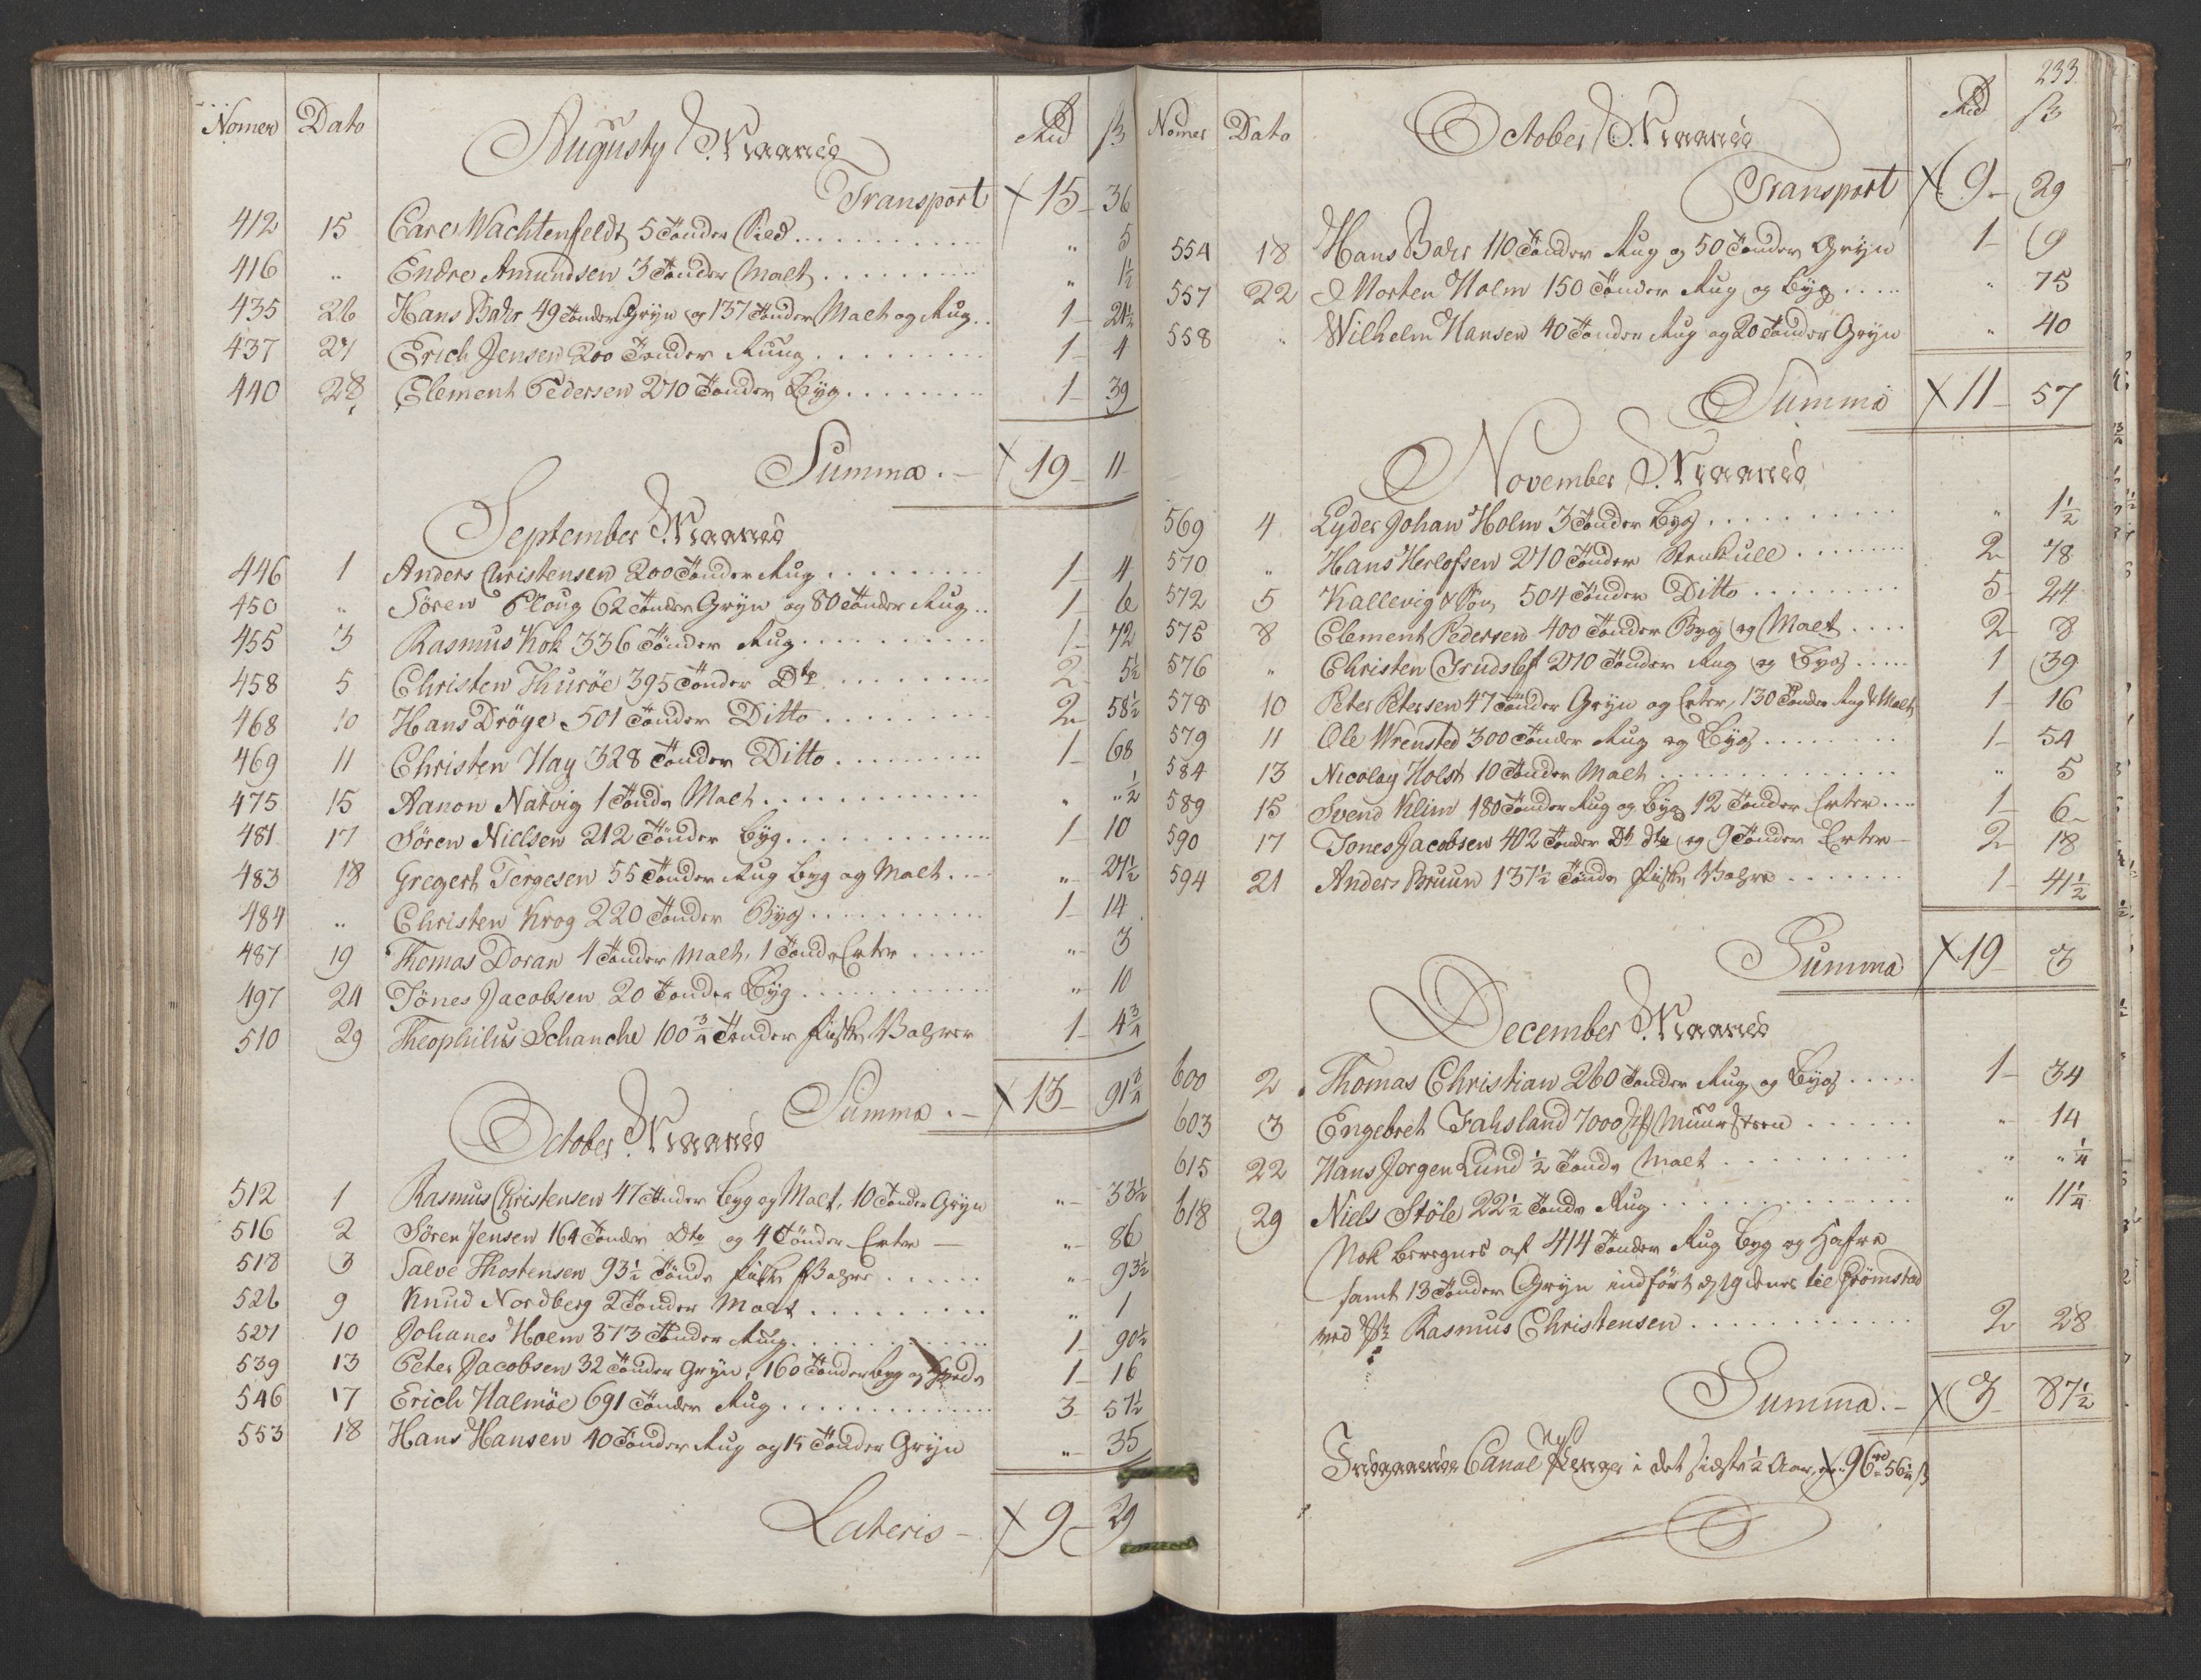 Nomer Dato Augusty Maaned Rd ß
Transport 15 36
412 15 Carel Wachtenfeldt 5 Tønder Sild " 5
416 " Endre Amundsen 3 Tønder Malt " 1½
435 26 Hans Bahr 49 Tønder Gryn og 137 Tønder Malt og Rug 1 21½
437 27 Erich Jensen 200 Tønder Ruug 1 4
440 28 Clement Pedersen 270 Tønder Byg 1 39
Summa 19 11
September Maaned
446 1 Anders Christensen 200 Tønder Rug 1 4
450 " Søren Ploug 62 Tønder Gryn og 80 Tønder Rug 1 6
455 3 Rasmus Kok 336 Tønder Rug 1 72
458 5 Christen Thurøe 395 Tønder Dto 2 5½
468 10 Hans Drøye 501 Tønder Ditto 2 58½
469 11 Christen Hay 328 Tønder Ditto 1 68
475 15 Aanon Natvig 1 Tønde Malt " "½
481 17 Søren Nielsen 212 Tønder Byg 1 10
483 18 Gregert Tergesen 55 Tønder Rug Byg og Malt " 27½
484 " Christen Krog 220 Tønder Byg 1 14
487 19 Thomas Doran 4 Tønder Malt, 1 Tønde Erter " 3
497 24 Tönes Jacobsen 20 Tønder Byg " 10
510 29 Theophilus Schanche 100¾ Tønder fiske Vahrer 1 4¾
Summa 13 91¾
October Maaned
512 1 Rasmus Christensen 47 Tønder Byg og Malt, 10 Tønder Gryn " 33½
516 2 Søren Jensen 164 Tønder Dto og 4 Tønder Erter " 86
518 3 Salve Thostensen 93½ Tønde fiske Vahre " 93½
526 9 Knud Nordberg 2 Tønder Malt " 1
527 10 Johanes Holm 373 Tønder Rug 1 90½
539 13 Peter Jacobsen 32 Tønder Gryn, 160 Tønder Byg og 1 16
546 17 Erich Halmöe 691 Tønder Rug 3 57½
553 18 Hans Hansen 40 Tønder Rug og 15 Tønder Gryn " 35
Lateris 9 29
233
Nomer Dato October Maaned Rd ß
Transport 9 29
554 18 Hans Bahr 110 Tønder Rug og 50 Tønder Gryn 1 9
557 22 Morten Holm 150 Tønder Rug og Byg " 75
558 " Wilhelm Hansen 40 Tønder Rug og 20 Tønder Gryn " 40
Summa 11 57
November Maaned
569 4 Lyder Johan Holm 3 Tønder Byg " 1½
570 " Hans Herlofsen 270 Tønder Steenkull 2 78
572 5 Kallevig & Søn 504 Tønder Ditto 5 24
575 8 Clement Pedersen 400 Tønder Byg og Malt 2 8
576 " Christen Trudslef 270 Tønder Rug og Byg 1 39
578 10 Peter Petersen 47 Tønder Gryn og Erter, 130 Tønder Rug & Malt 1 16
579 11 Ole Wrensted 300 Tønder Rug og Byg 1 54
584 13 Nicolay Holst 10 Tønder Malt " 5
589 15 Svend Klim 180 Tønder Rug og Byg 12 Tønder Erter 1 6
590 17 Tones Jacobsen 402 Tønder Dto dto og 9 Tønder Erter 2 18
594 21 Anders Bruun 137½ Tønde fiske Vahre 1 41½
Summa 19 3
December Maaned
600 2 Thomas Christian 260 Tønder Rug og Byg 1 34
603 3 Engebret Fahsland 7000 st Muursteen " 14
615 22 Hans Jorgen Lund ½ Tønde Malt " "¼
618 29 Niels Stöle 22½ Tønde Rug " 11¼
Nok beregnes af 414 Tønder Rug Byg og Hafre
samt 13 Tønder Gryn indført til Grömstad
ved Rasmus Christensen 2 28
Summa 3 87½
Indgaaende Canal Penge i det sidste ½ Aar 96 rd 56¼ ß